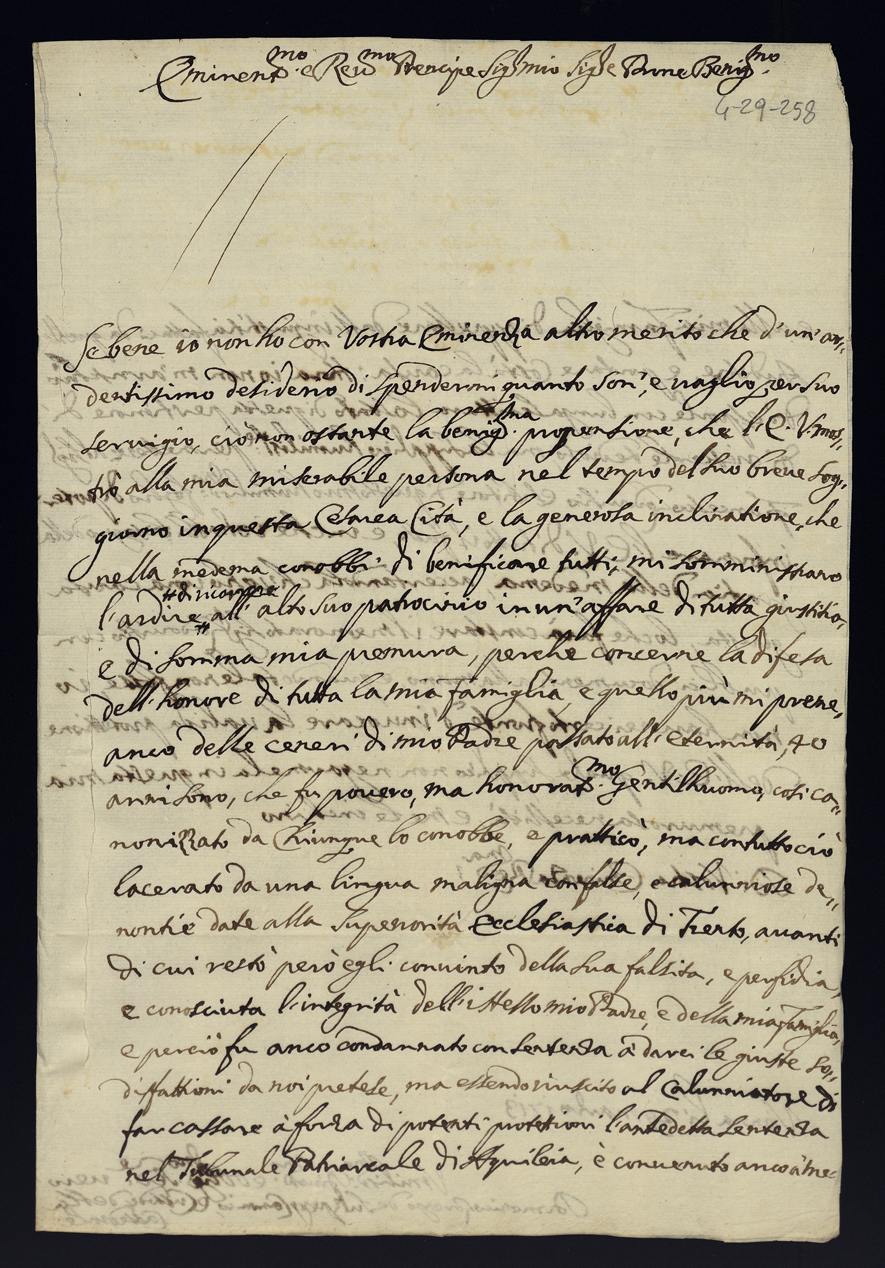 Eminentmo e Revmo Prencipe Sigr mio Sigre Prone Benigmo
4-29-258
Se bene io non hò con Vostra Eminenza altro merito che d'un'ar,,
dentissimo desiderio di spendermi quanto son', e vaglio per suo
servigio, ciò non ostante la benigma propensione, che l'E. V. mos,,
trò alla mia miserabile persona nel tempo del suo breve sog,,
giorno in questa Cesarea Cità, e la generosa inclinatione, che
nella medema conobbi di benificare tutti, mi somministrano
di ricorrere
l'ardire all'alto suo patrocinio in un'affare di tutta giustitia,
e di somma mia premura, perche concerne la difesa
dell'honore di tutta la mia famiglia, e quello più mi preme,
anco delle ceneri di mio Padre passato all'eternità, 40
anni sono, che fu povero, ma honoratmo Gentilhuomo, così ca,,
nonizzato da chiunque lo conobbe, e pratticò, ma contuttociò
lacerato da una lingua maligna con false, e calunniose de,,
nontie date alla Superiorità Ecclesiastica di Trento, avanti
di cui restò però egli convinto della sua falsita, e perfidia,
e conosciuta l'integrità dell'istesso mio Padre, e della mia famiglia,
e perciò fu anco condannato con sentenza à darci le giuste so,,
disfattioni da noi pretese, ma essendo riuscito al calunniatore di
far cassare à forza di potenti protettioni l'antedetta sentenza
nel Tribunale Patriarcale di Aquileia, è convenuto anco à me